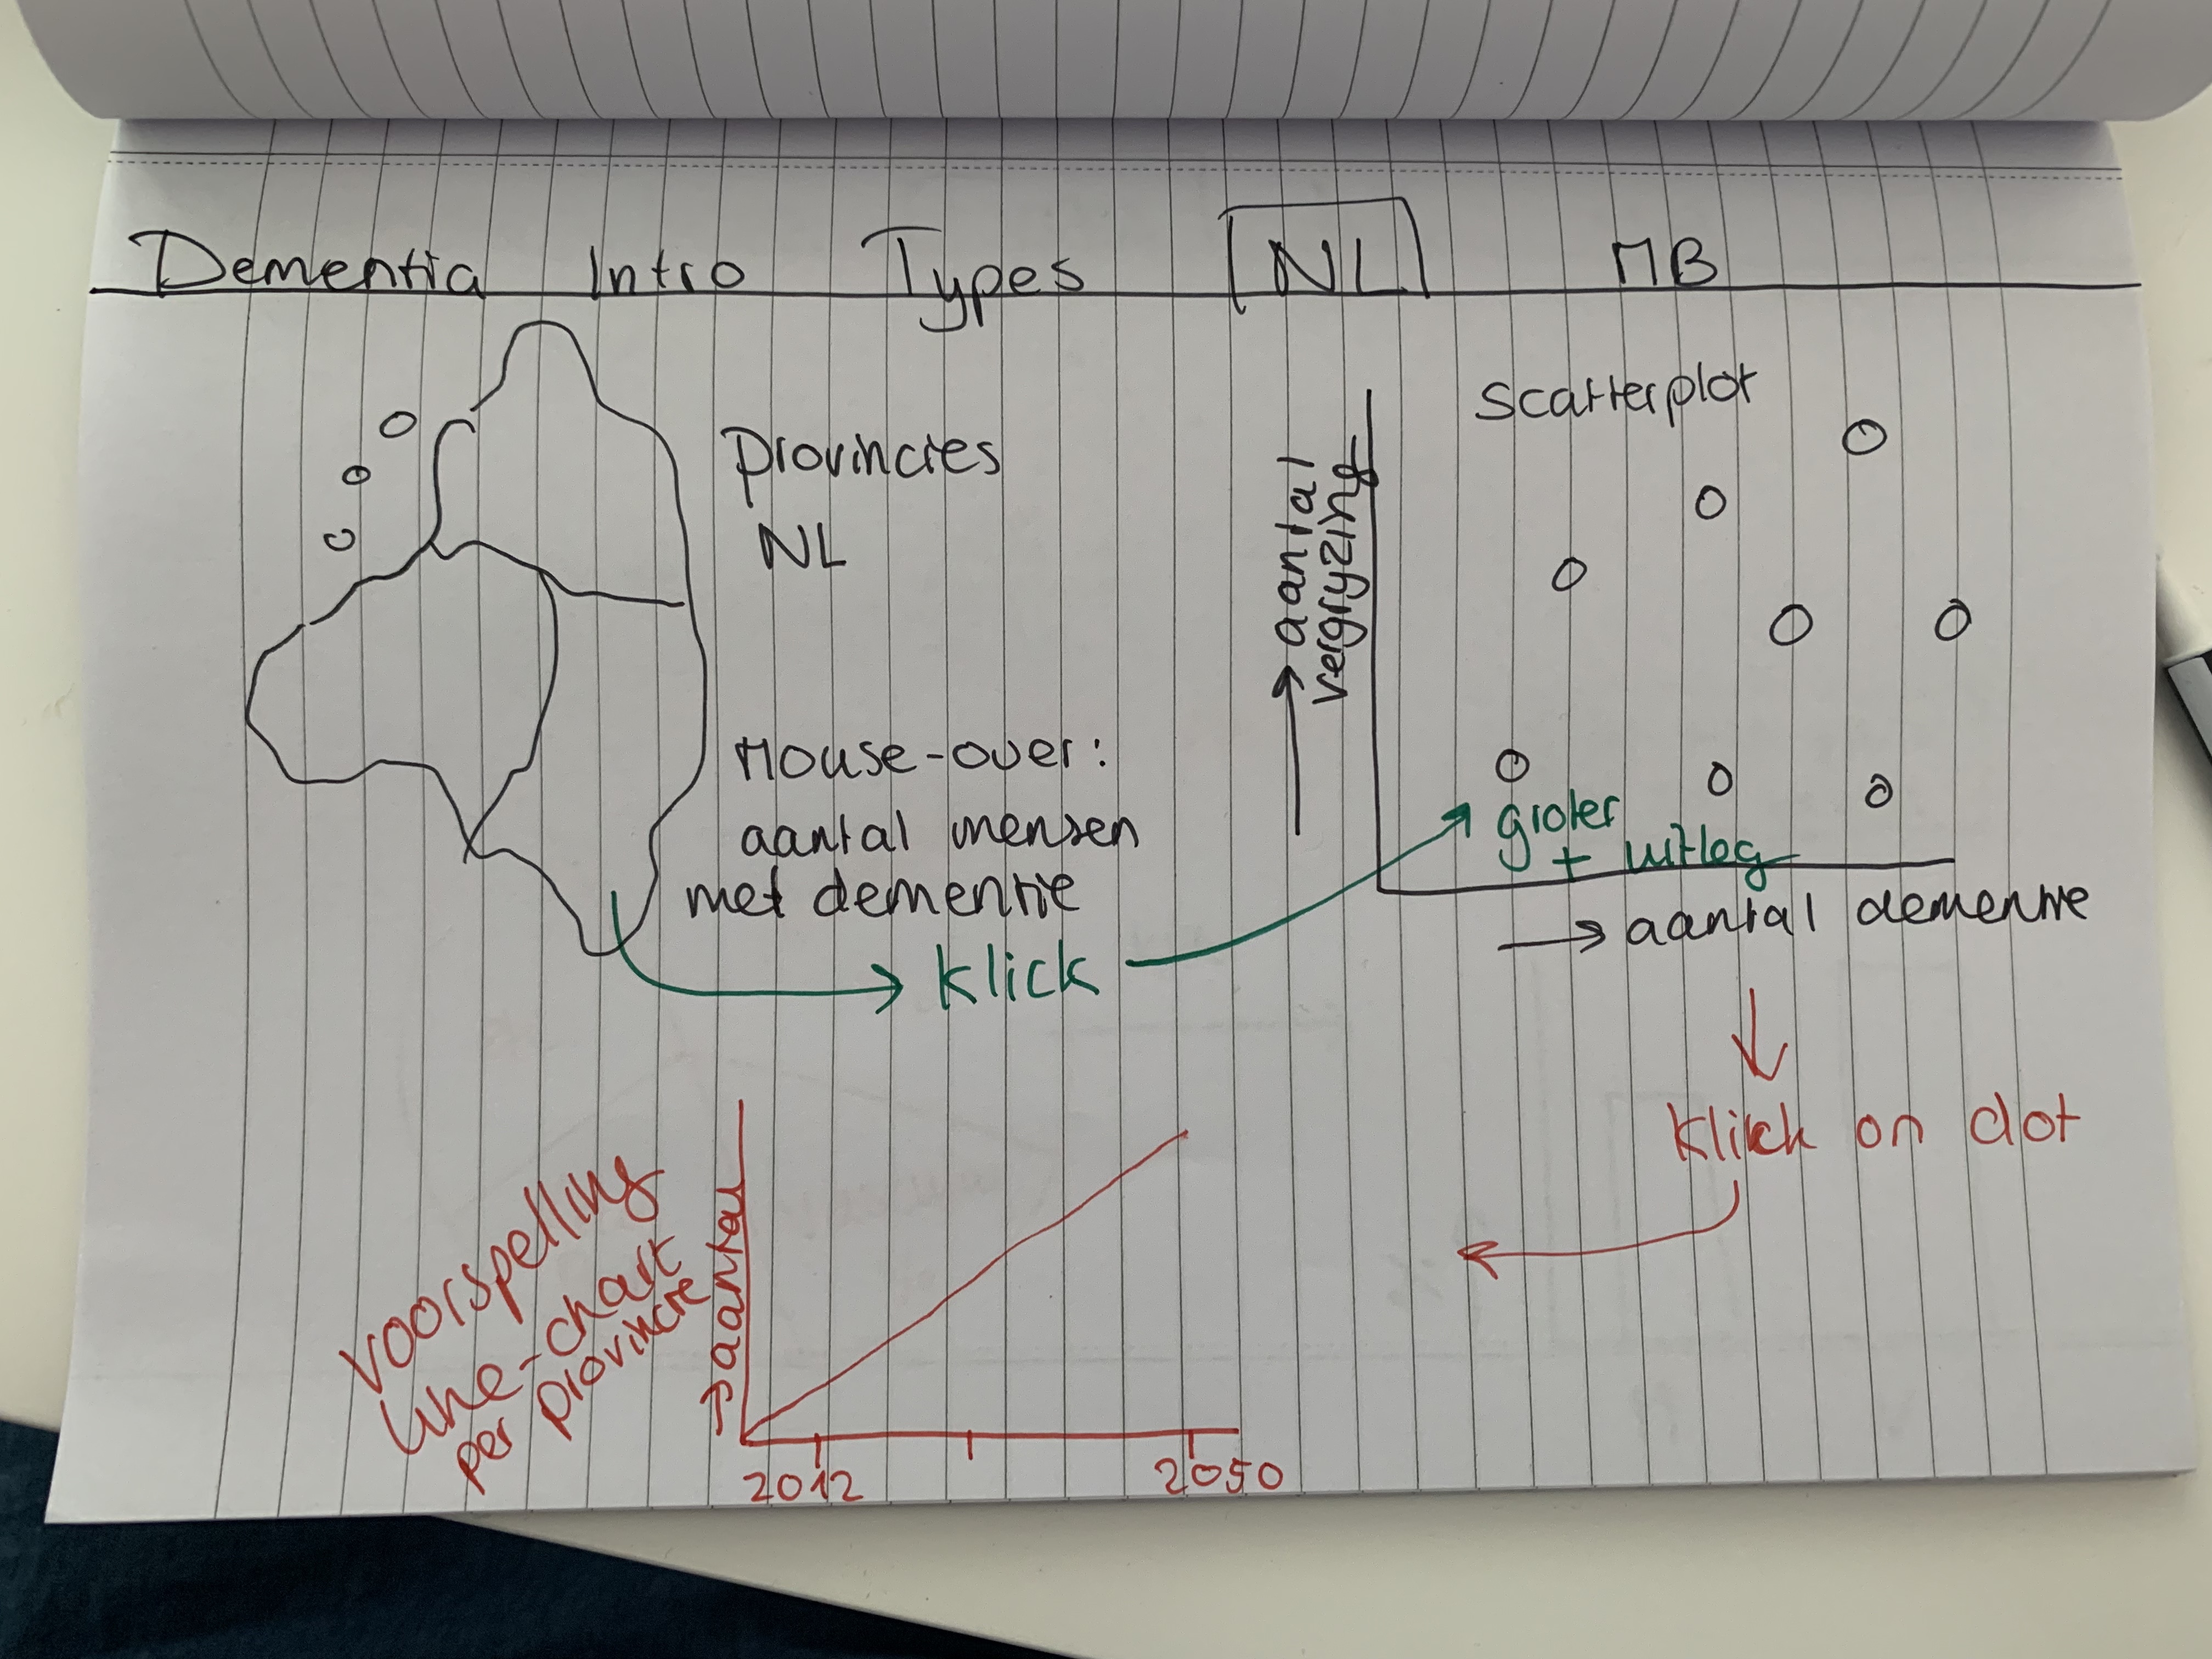 Dementia Intro Types NL MB
Provincies
NL
Mouse-over:
aantal mensen
met dementie
klick
scatterplot
→ aantal
vergryzing
groter
+ uitleg
→ aantal dementie
klick on dot
voorspelling
line-chart
per provincie
→ aantal
2012 2050